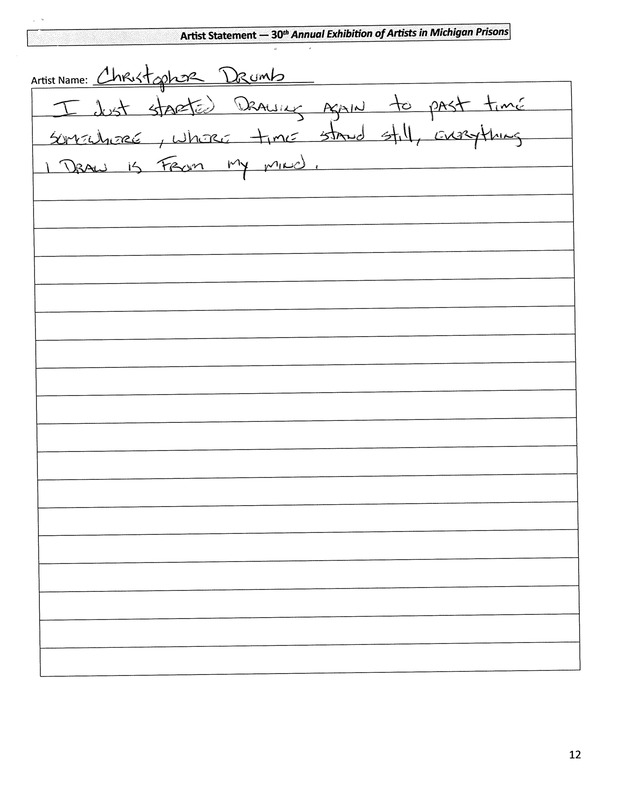 Artist Statement — 30th Annual Exhibition of Artists in Michigan Prisons
Artist Name: Christopher Drumb
I Just started Drawing again to past time
somewhere, where time stand still, everything
I Draw is From my mind.
12